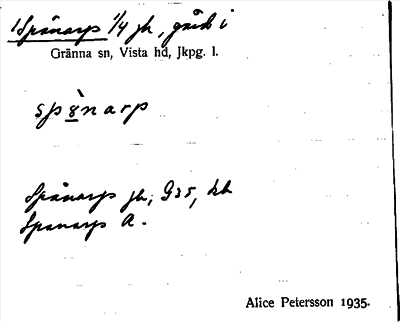 1 Spånarp 1/4 jb, gård i
Gränna sn, Vista hd, Jkpg. l.
Spånarp jb, G35, kb
Spanarp A.
Alice Petersson 1935.